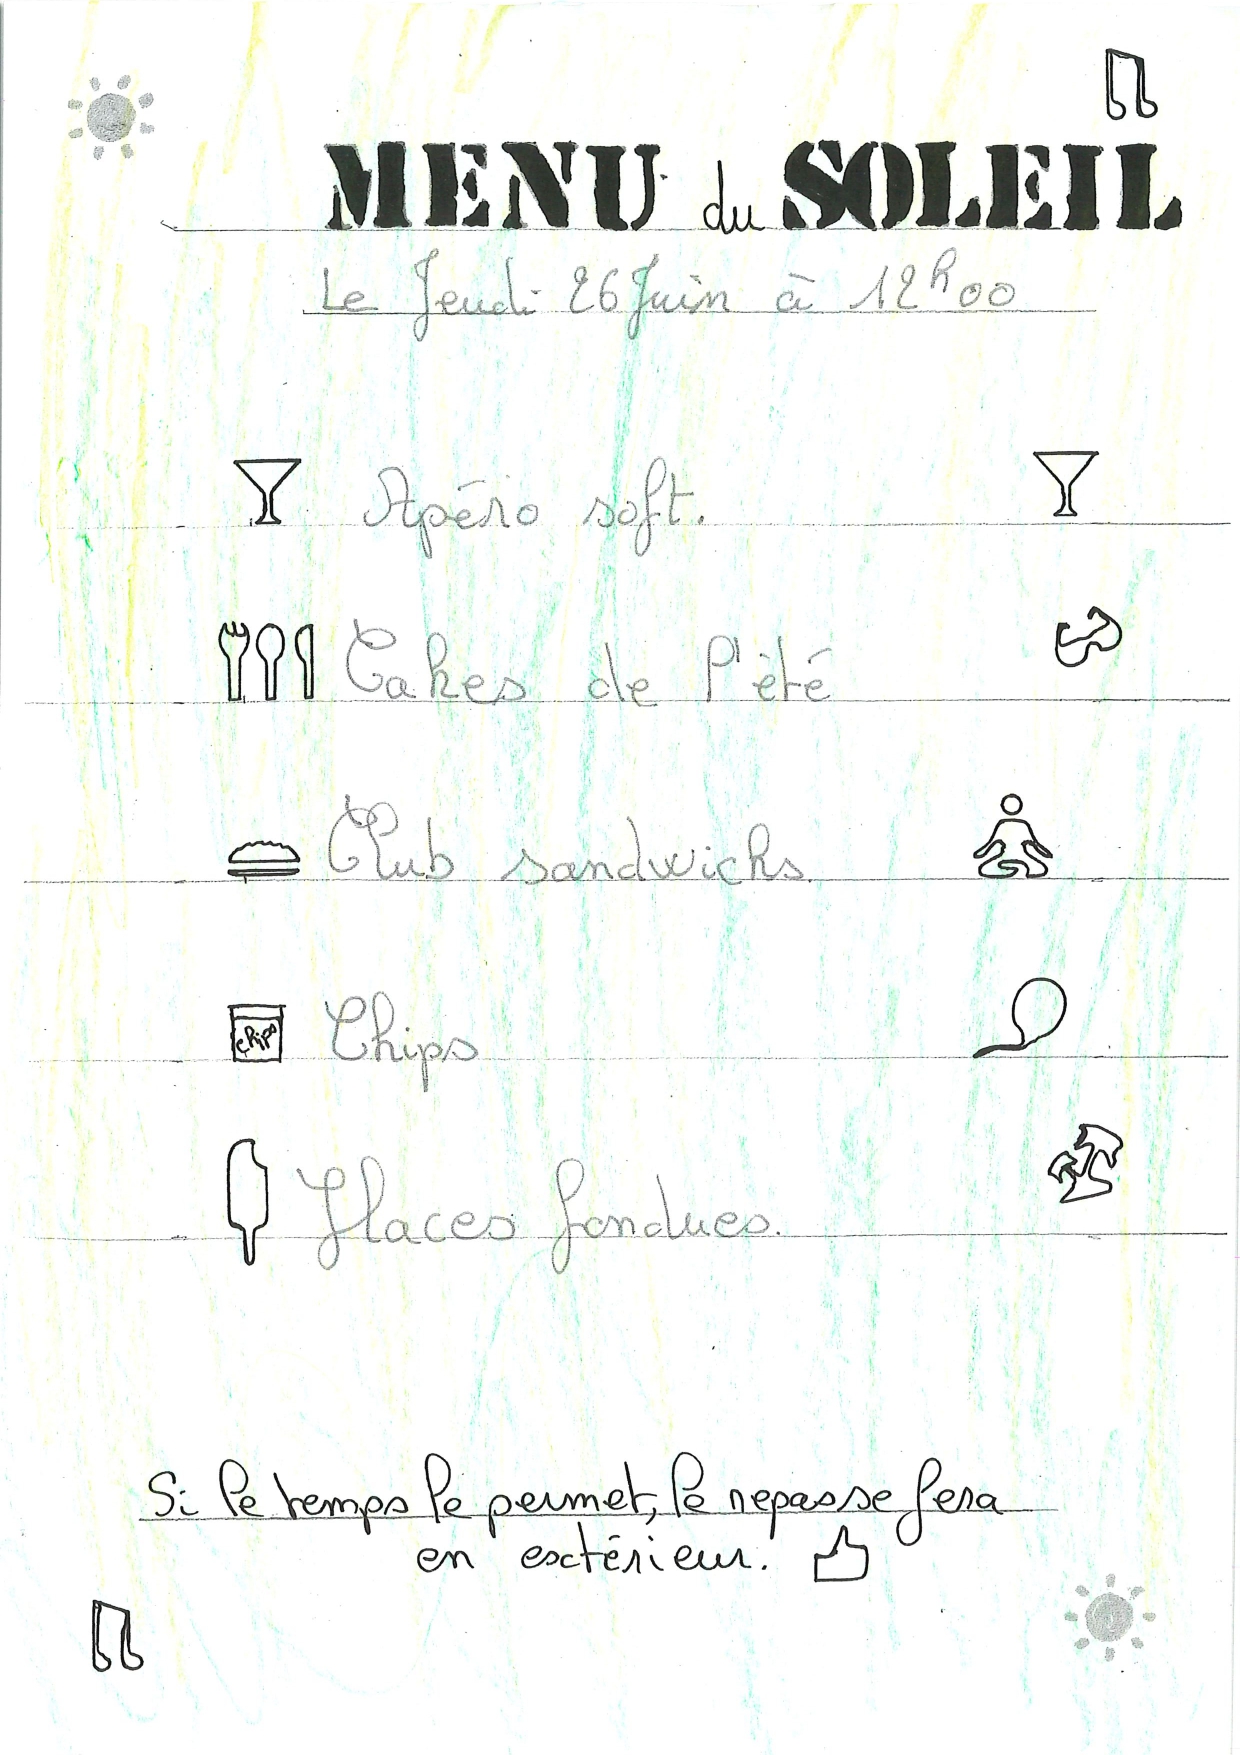 MENU du SOLEIL
Le Jeudi 26 Juin à 12h00
Apéro soft.
Cakes de l'èté
Club sandwichs
chips
Chips
Glaces fondues.
Si le temps le permet, le repas se fera
en extérieur.